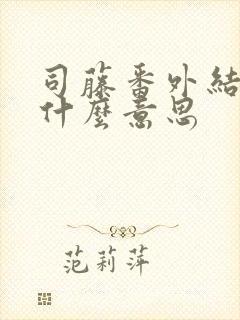 司藤番外結
什麼意思
范莉萍